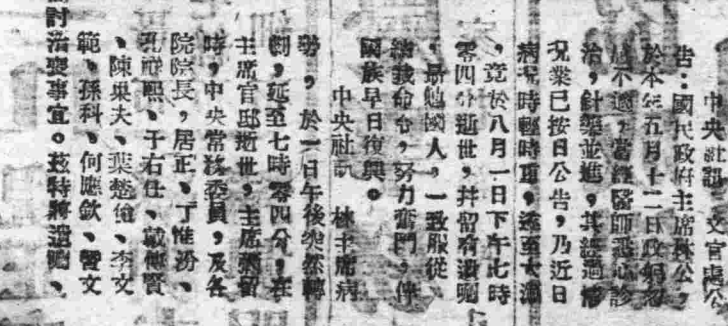 中央社訊 文官處公
告:國民政府主席林公,
於本年五月十二日政躬
不適,當經醫師悉心診
治,針藥並進,其經過情
況業已按日公告,乃近日
病況時輕時重,遂至大漸
,竟於八月一日下午七時
零四分逝世,并留有遺囑
,勗勉國人,一致服從
命令,努力奮鬥,俾
國族早日復興。
中央社訊 林主席病
勢,於一日午後突然轉
劇,延至七時零四分,在
主席官邸逝世,主席彌留
時,中央常務委員,及各
院院長,居正、丁惟汾、
孔祥熙、于右任、戴傳賢
、陳果夫、葉楚傖、李文
範、孫科、何應欽、曾文
討治喪事宜。茲特將遺囑、